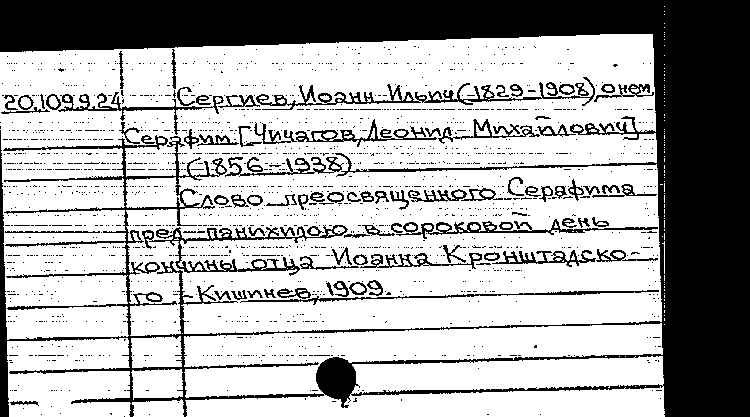 20.109.9.24 Сергиев, Иоанн Ильич (1829-1908), о нем.
Серафим [Чичагов, Леонид Михайлович]
(1856-1938)
Слово преосвященного Серафима
пред панихидою в сороковой день
кончины отца Иоанна Кронштадско-
го - Кишинев, 1909.